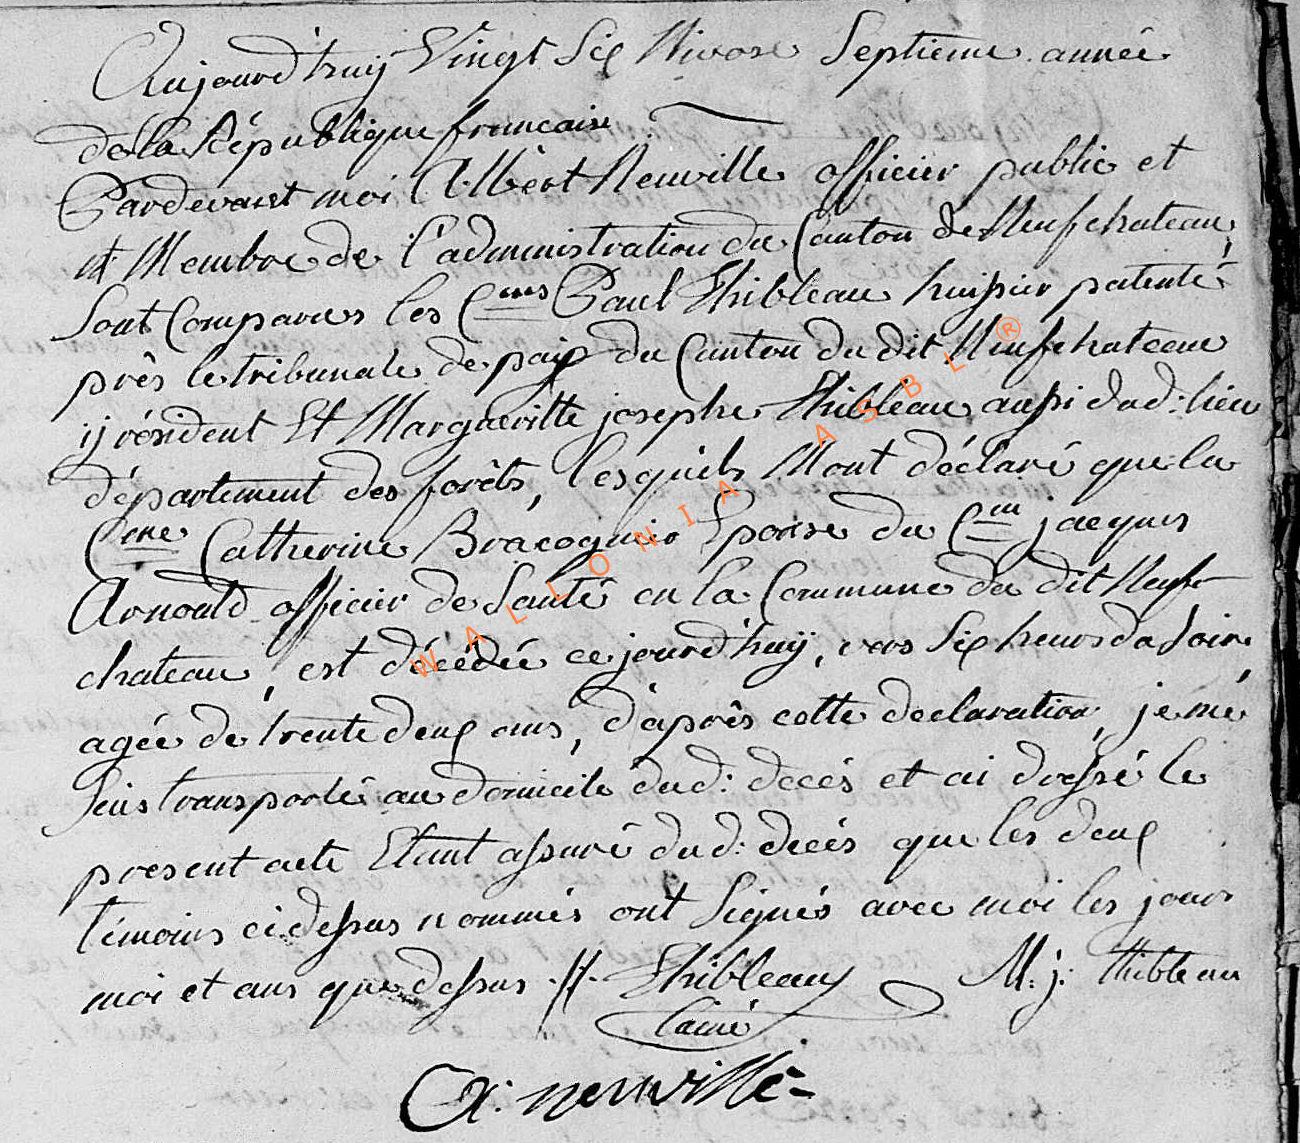 Aujourd'huy Vingt Six Nivose Septieme année
de la République francaise
Pardevant moi Albert Neuville officier public et
et Membre de l'administration du Canton de Neufchateau,
sont Comparus les Cens Paul Thibleau huissier patenté
près le tribunale de paix du Canton du dit Neufchateau
ÿ résident Et Margueritte josephe Thibleau aussi dud: lieu
département des forêts, lesquels Mont déclaré que la
Cene Catherine Bracognier Epouse du Cen jacques
Arnould officier de Santé en la Commune du dit Neuf-
chateau, est décédée ce jourd'huÿ, vers Six heurs du Soir,
agée de trente deux ans, d'après cette declaration, je me
suis transporté au domicile dud: decés et ai dressé le
present acte Etant assuré dud: decés que les deux
témoins ci dessus nommés ont Signés avec moi les jour
moi et ans que dessus .//. Thibleau M: j: thibleau
l'ainé
A: neuville
WALLONIA ASBL ®